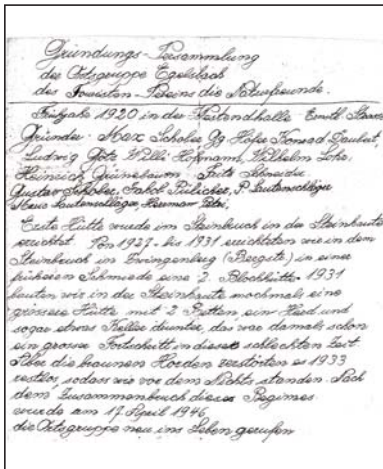 Gründungs-Versammlung
der Ortsgruppe Egelsbach
des Touristen-Vereins die Naturfreunde.
Frühjahr 1920 in der Westendhalle
Gründer: Max Schäfer Gg Höfer Konrad Daubert,
Ludwig Götz Willi Hofmann, Wilhelm Lohr,
Heinrich Grünebaum Fritz Schneider
Gustav Schäfer, Jakob P. Lautenschläger
Lautenschläger, Hermann
Erste Hütte wurde im Steinbruch in der Steinhaute
errichtet. Von 1927 bis 1931 errichteten wir in dem
Steinbruch im Zwingenberg (Bergstr.) in einer
früheren Schmiede eine 2. Blockhütte. 1931
bauten wir in der Steinhaute nochmals eine
grössere Hütte mit 2 Betten, ein Herd und
sogar etwas Keller drunter, das war damals schon
ein grosser Fortschritt in dieser schlechten Zeit
Aber die braunen Horden zerstörten es 1933
restlos, sodass wir vor dem Nichts standen. Nach
dem Zusammenbruch dieses Regimes
wurde am 17. April 1946
die Ortsgruppe neu ins Leben gerufen